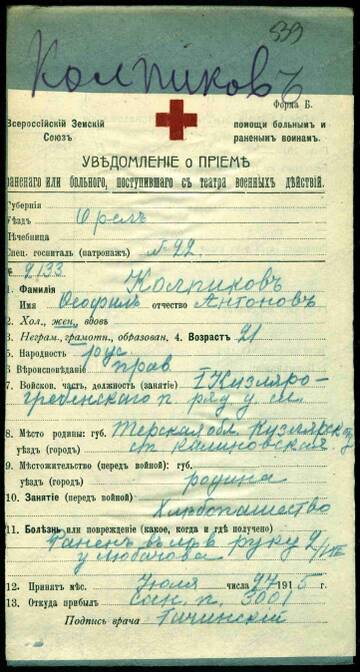 939
Колпиковъ
Форма Б.
Всероссійскій Земскій Союзъ
помощи больнымъ и раненымъ воинамъ.
УВѢДОМЛЕНІЕ о ПРІЕМѢ
раненаго или больного, поступившаго съ театра военныхъ дѣйствій.
Губернія
Уѣздъ Орелъ
Лѣчебница
Спец. госпиталь (патронажъ) №92.
№ 9133
1. Фамилія Колпиковъ
Имя Ѳеофилъ отчество Антоновъ
2. Хол., жен., вдовъ
3. Неграм., грамотн., образован, 4. Возрастъ 21
5. Народность рус
6 Вѣроисповѣданіе прав
7 Войсков. часть, должность (занятіе) I Кизляро-
гребенскаго п. ряд
8. Мѣсто родины: губ. Терская обл. Кизлярск
уѣздъ (городъ) ст Калиновская
9. Мѣстожительство (передъ войной): губ.
уѣздъ (городъ) родина
10. Занятіе (передъ войной)
Хлѣбопашество
11. Болѣзнь или поврежденіе (какое, когда и гдѣ получено)
Раненъ въ руку
у Любачова
12. Принятъ мѣс. Іюля числа 27 1915 г.
13. Откуда прибылъ Сан. п. 3001
Подпись врача